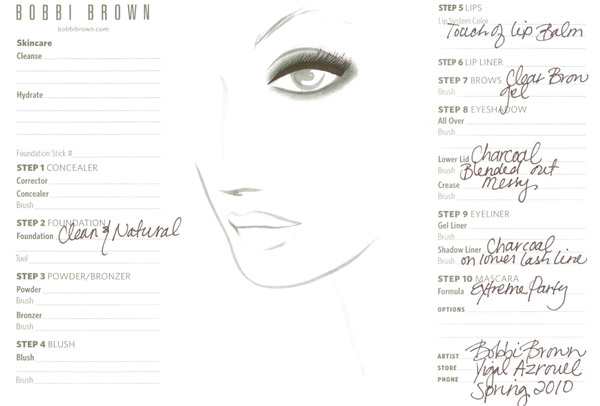 BOBBI BROWN
bobbibrown.com
Skincare
Cleanse
Hydrate
Foundation Stick #
STEP 1 CONCEALER
Corrector
Concealer
Brush
STEP 2 FOUNDATION
Foundation Clean & Natural
Tool
STEP 3 POWDER/BRONZER
Powder
Brush
Bronzer
Brush
STEP 4 BLUSH
Blush
Brush
STEP 5 LIPS
Lip System Color
Touch of Lip Balm
STEP 6 LIP LINER
STEP 7 BROWS Clear Brow
Brush gel
STEP 8 EYESHADOW
All Over
Brush
Lower Lid Charcoal
Brush Blended out
Crease Messy
Brush
STEP 9 EYELINER
Gel Liner
Brush
Shadow Liner Charcoal
Brush on lower lash line
STEP 10 MASCARA
Formula Extreme Party
OPTIONS
ARTIST Bobbi Brown
STORE Yigal Azrouel
PHONE Spring 2010